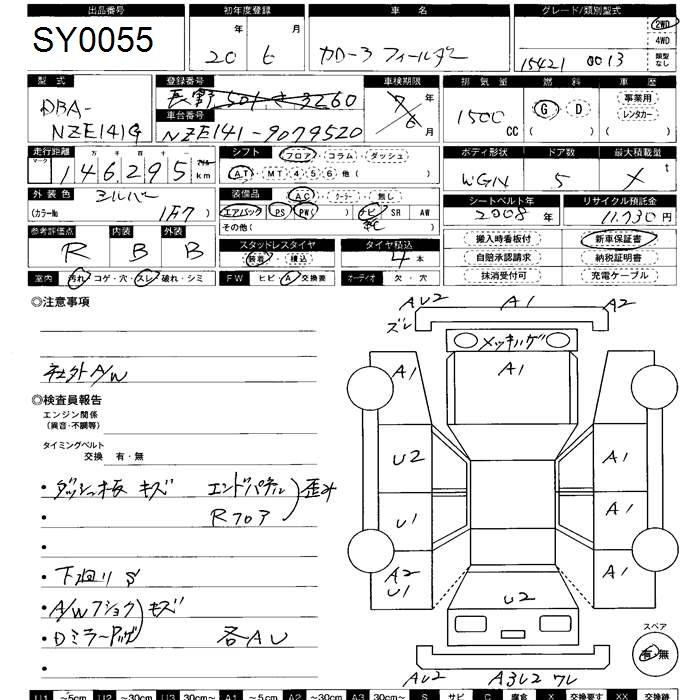 出品番号 初年度登録 車名 グレード/類別型式
SY0055 20 年 6 月 カローラフィールダー 15421 0013 2WD 4WD 類型なし
型式 登録番号 車検期限 排気量 燃料 車歴
DBA-NZE141G 長野501 き 3260 年 月 1500 CC G・D 事業用 レンタカー
車台番号
NZE141-9079520
走行距離 シフト フロア・コラム・ダッシュ ボディ形状 ドア数 最大積載量
マーク 十万 万 千 百 十 マイル
146295 km AT・MT 4 5 6 他( ) WGN 5 X t
外装色 シルバー 装備品 AC・クーラー・無し シートベルト年 リサイクル預託金
(カラーNo 1F7 ) エアバック PS PW( ) ナビ SR AW 2008 年 11,730 円
その他( )
参考評価点 内装 外装 スタッドレスタイヤ タイヤ積込 搬入時看板付 新車保証書
R B B 装着・積込 4 本 自賠承認請求 納税証明書
室内 汚れ・コゲ・穴・スレ・破れ・シミ FW ヒビ・A・交換要 オーディオ 欠・穴 抹消受付可 充電ケーブル
◎注意事項
社外A/W
◎検査員報告
エンジン関係
(異音・不調等)
タイミングベルト
交換 有・無
・ダッシュ板 キズ エンドパネル 歪み
Rフロア
・下廻り S
・A/W フショク キズ
・Dミラーアッパ 各AU
AU2 A1 A2
ズレ
メッキハゲ
A1 A1
U2 A1
U1 A1
A2 U1 A1
U2
AU2 A3U2 ワレ
スペア
有・無
U1 ~5cm U2 ~30cm U3 30cm~ A1 ~5cm A2 ~30cm A3 30cm~ S サビ C 腐食 X 交換要す XX 交換跡